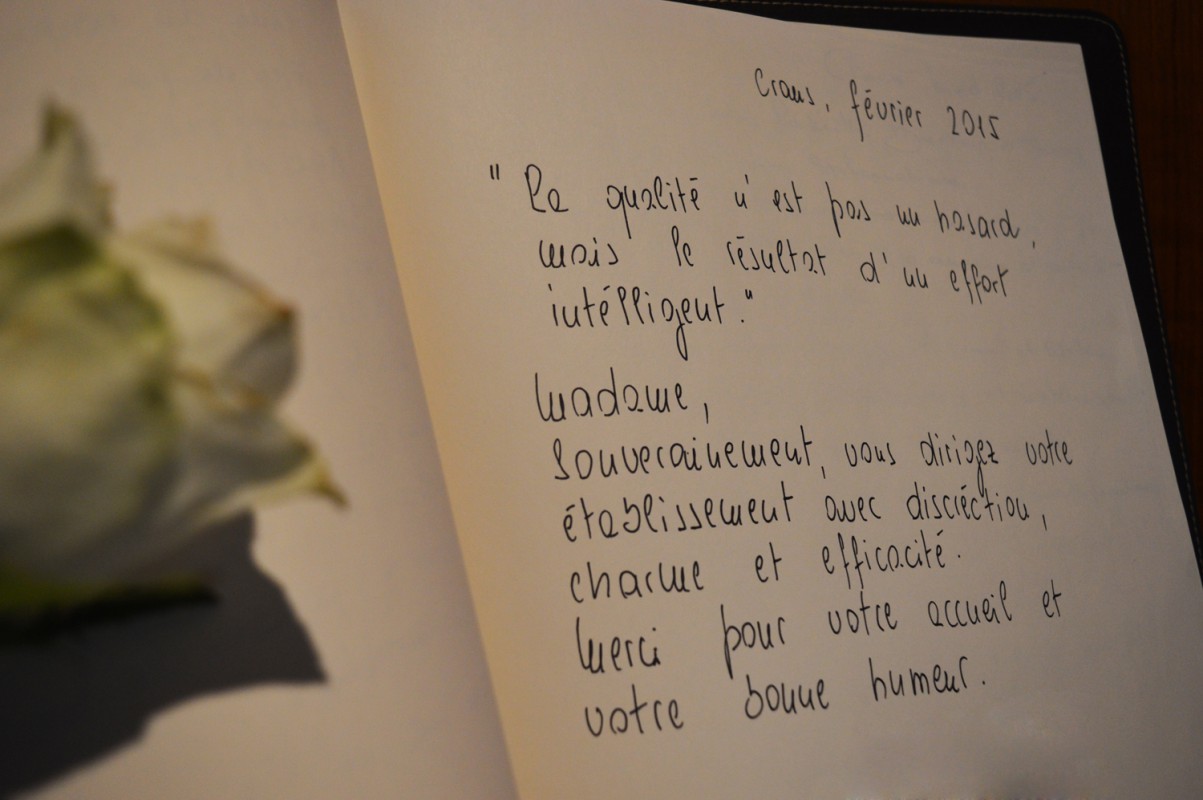 Crans, février 2015
" La qualité n'est pas un hasard,
mais le résultat d'un effort
intélligent."
Madame,
Souverainement, vous dirigez votre
établissement avec discréction,
charme et efficacité.
Merci pour votre accueil et
votre bonne humeur.